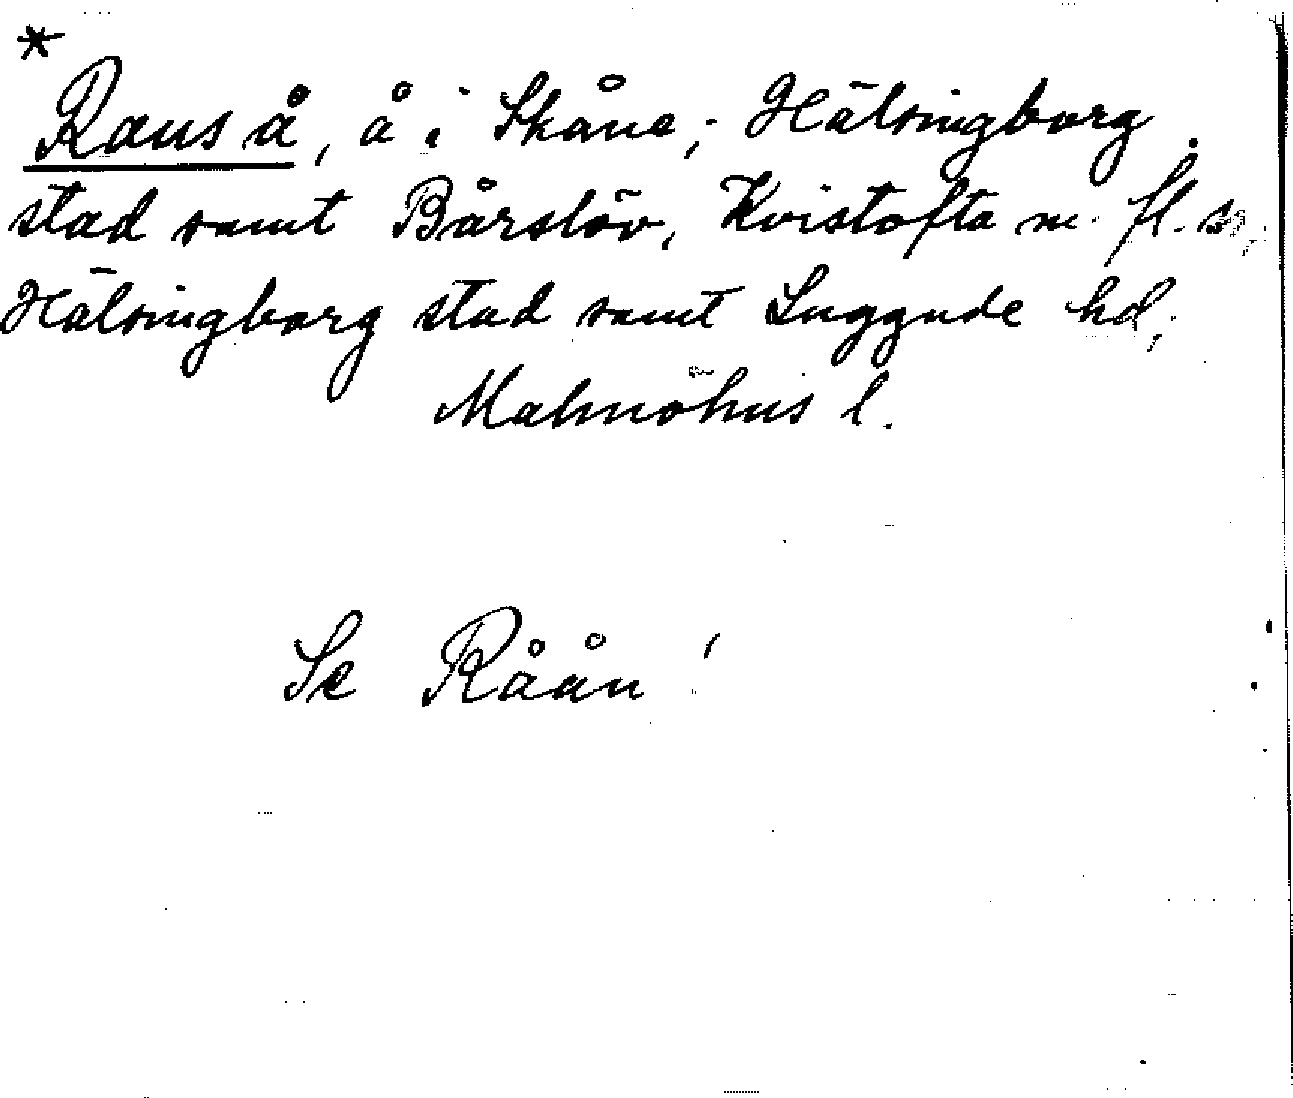 *
Raus å, å i Skåne; Hälsingborg
stad samt Bårslöv, Kvistofta m. fl. sr,
Hälsingborg stad samt Luggude hd,
Malmöhus l.
Se Råån!